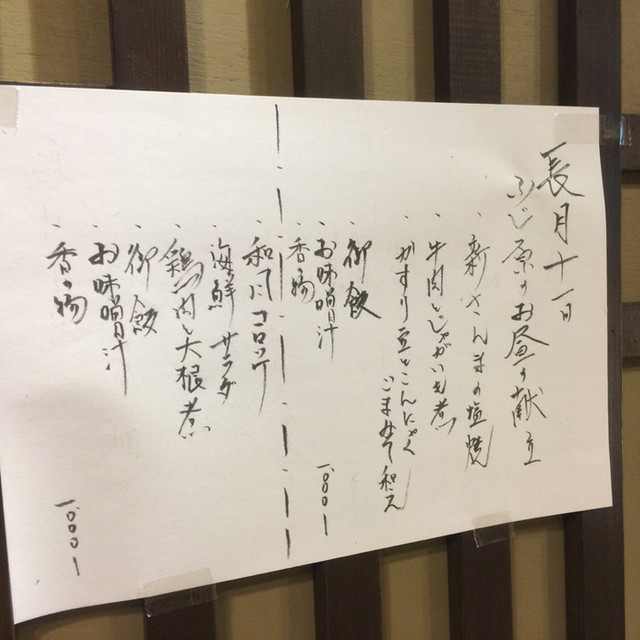 長月十一日
ふじ原のお昼の献立
・新さんまの塩焼
・牛肉とじゃがいも煮
・かすり豆とこんにゃく
ごまみそ和え
・御飯
・お味噌汁
・香の物
一、〇〇〇ー
・和風コロッケ
・海鮮サラダ
・鶏肉と大根煮
・御飯
・お味噌汁
・香の物
一、〇〇〇ー